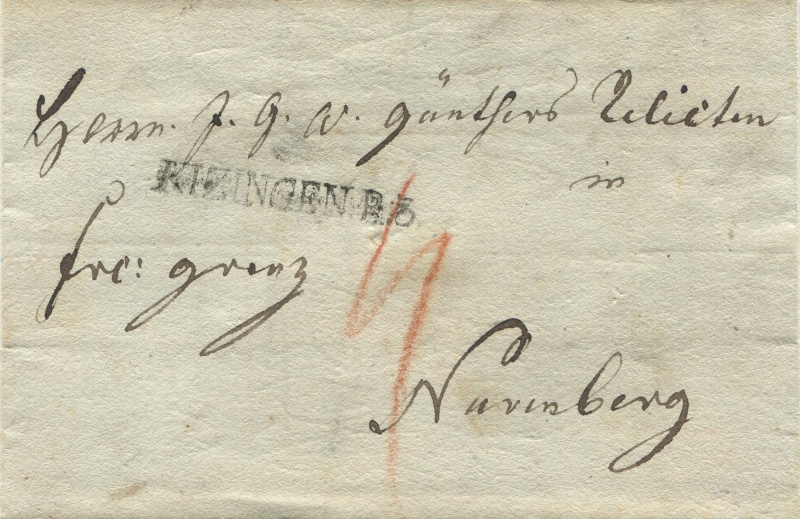 Herrn. J. G. W. Günthers Relicten
KIZINGEN.R.3
in
frc: grenz
4
Nürnberg